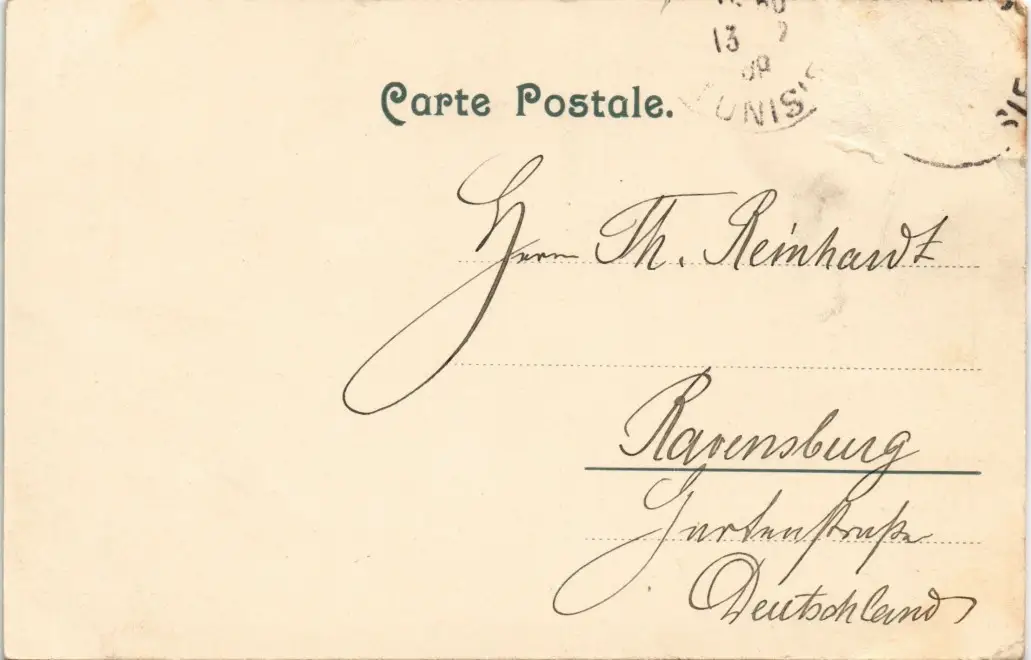 13
TUNIS
Carte Postale.
Herrn Th. Reinhardt
Ravensburg
Gartenstraße
Deutschland